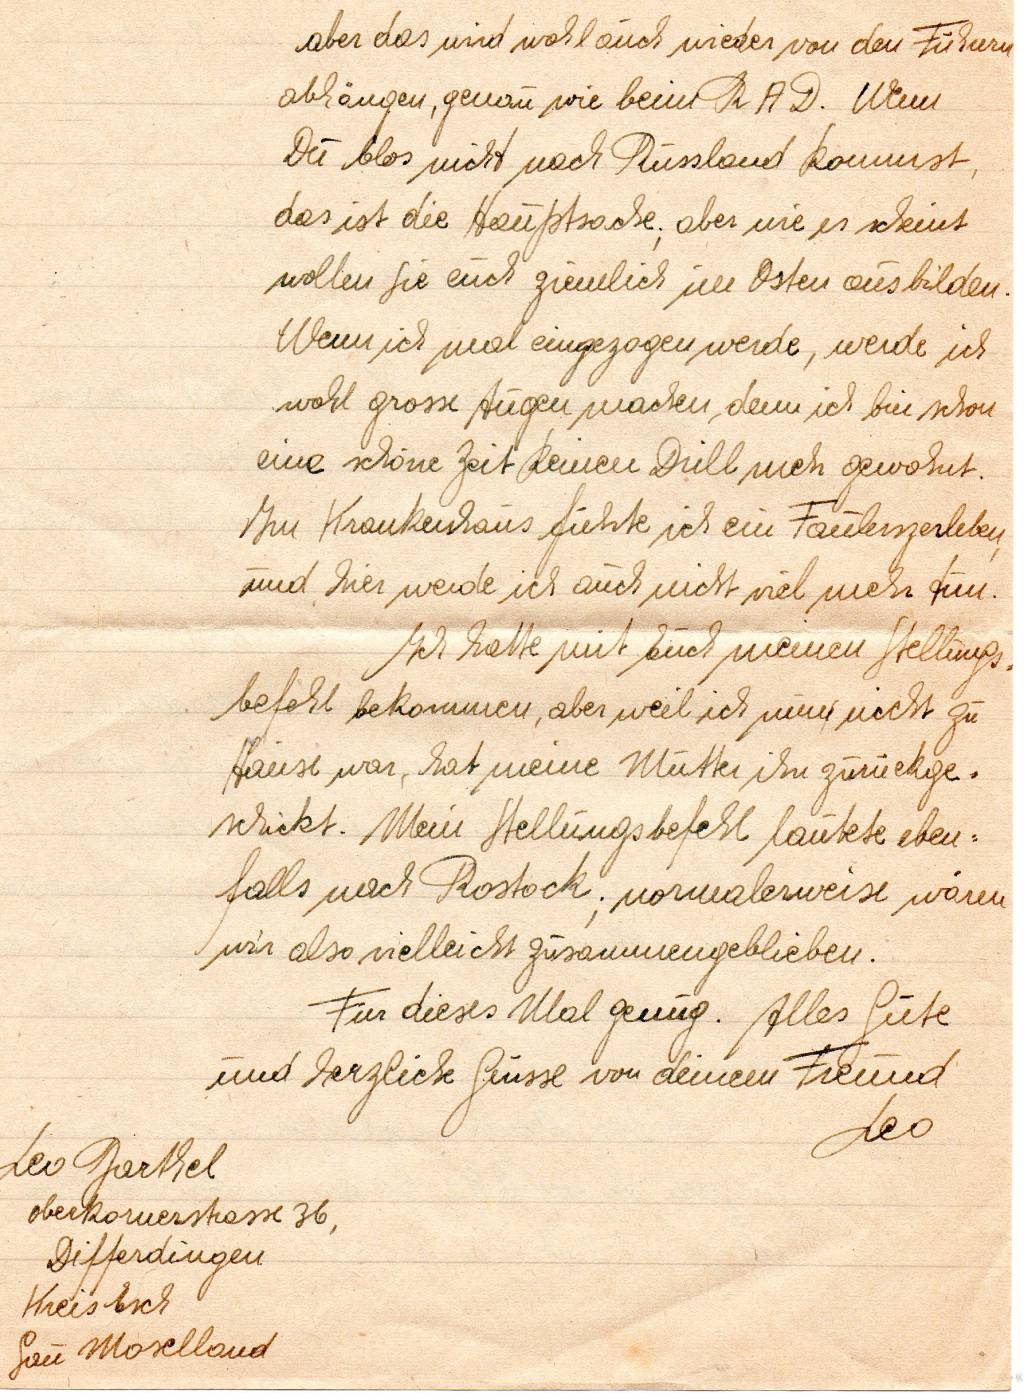 aber das wird wohl auch wieder von den Führern
abhängen, genau wie beim R A D. Wenn
Du blos nicht nach Russland kommst,
das ist die Hauptsache; aber wie es scheint
wollen sie euch ziemlich im Osten ausbilden.
Wenn ich mal eingezogen werde, werde ich
wohl grosse Augen machen, denn ich bin schon
eine schöne Zeit keinen Drill mehr gewohnt.
Im Krankenhaus führte ich ein Faulenzerleben,
und hier werde ich auch nicht viel mehr tun.
Ich hatte mit euch meinen Stellungs-
befehl bekommen, aber weil ich nun nicht zu
Hause war, hat meine Mutter ihn zurückge-
schickt. Mein Stellungsbefehl lautete eben=
falls nach Rostock; normalerweise wären
wir also vielleicht zusammengeblieben.
Für dieses Mal genug. Alles Gute
und herzliche Grüsse von deinem Freund
Leo
Leo Barthel
Oberkornerstrasse 36,
Differdingen
Kreis Esch
Gau Moselland